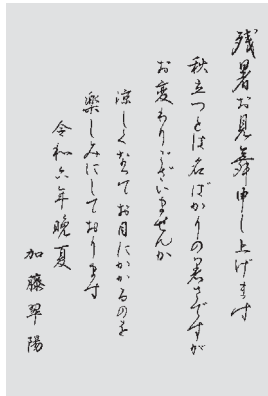 残暑お見舞申し上げます
秋立つとは名ばかりの暑さですが
お変わりございませんか
涼しくなってお目にかかるのを
楽しみにしております
令和六年晩夏
加藤翠陽